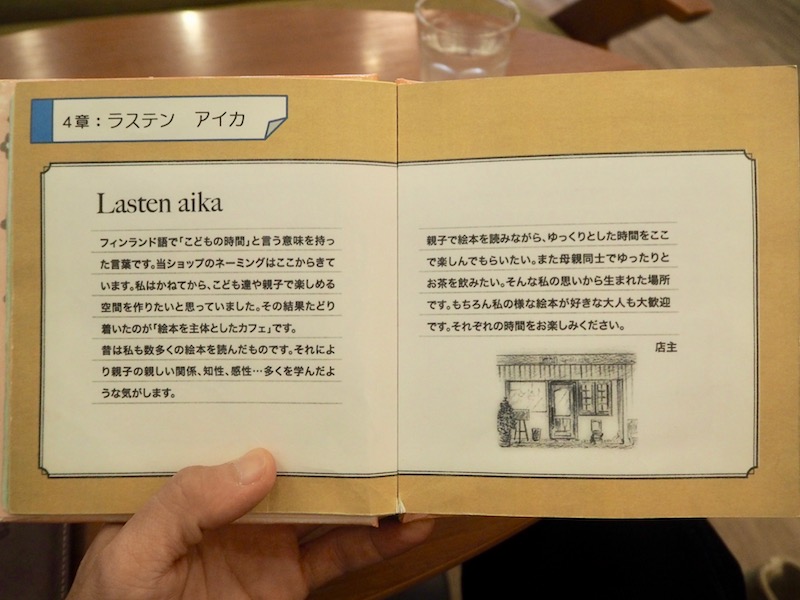 4章：ラステン　アイカ
Lasten aika
フィンランド語で「こどもの時間」と言う意味を持っ
た言葉です。当ショップのネーミングはここからきて
います。私はかねてから、こども達や親子で楽しめる
空間を作りたいと思っていました。その結果たどり
着いたのが「絵本を主体としたカフェ」です。
昔は私も数多くの絵本を読んだものです。それによ
り親子の親しい関係、知性、感性…多くを学んだよ
うな気がします。
親子で絵本を読みながら、ゆっくりとした時間をここ
で楽しんでもらいたい。また母親同士でゆったりと
お茶を飲みたい。そんな私の思いから生まれた場所
です。もちろん私の様な絵本が好きな大人も大歓迎
です。それぞれの時間をお楽しみください。
店主